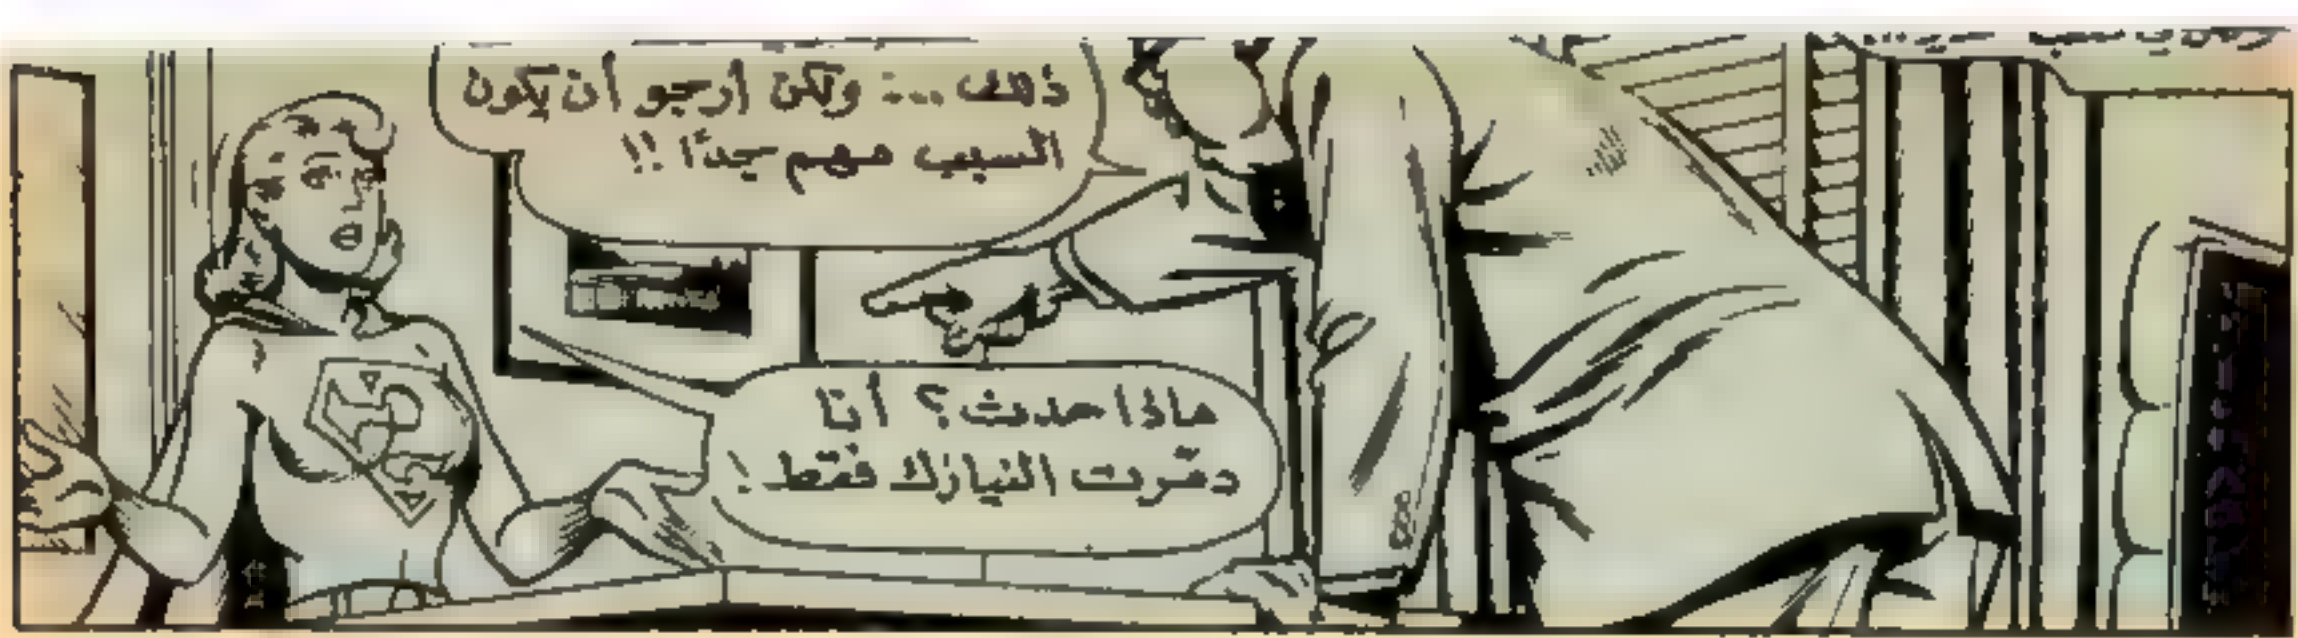 ذلك ... ولكن أرجو أن يكون
السبب مهم جداً !!
ماذا حدث ؟ أنا
دمّرت النيازك فقط !